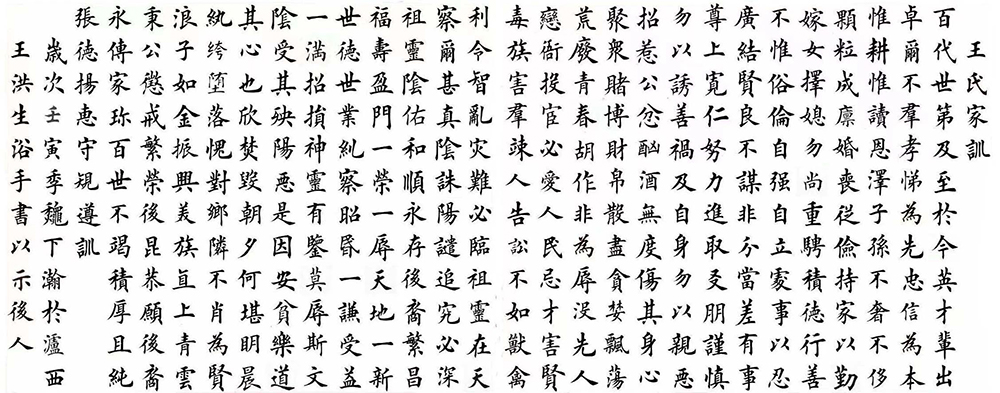 王氏家訓
百代世第及至於今英才輩出
卓爾不羣孝悌為先忠信為本
惟耕惟讀恩澤子孫不奢不侈
顆粒成廪婚喪従儉持家以勤
嫁女擇媳勿尚重騁積德行善
不惟俗倫自强自立處事以忍
廣結賢良不謀非分當差有事
尊上寛仁努力進取交朋謹慎
勿以誘善禍及自身勿以親惡
招惹公忿酗酒無度傷其身心
聚衆賭博財帛散盡貪婪飄蕩
荒廢青春胡作非為辱没先人
戀衙投宦必愛人民忌才害賢
毒族害羣竦人告訟不如獸禽
利令智亂灾難必臨祖靈在天
察爾甚真陰誅陽譴追究必深
祖靈陰佑和順永存後裔繁昌
福壽盈門一榮一辱天地一新
世德世業糾察昭昏一謙受益
一满招損神靈有鑒莫辱斯文
陰受其殃陽惡是因安貧樂道
其心也欣焚毁朝夕何堪明晨
紈絝堕落愧對鄉隣不肖為賢
浪子如金振興美族直上青雲
秉公懲戒繁榮後昆恭願後裔
永傳家珎百世不竭積厚且純
張德揚惠守規遵訓
歲次壬寅季龝下瀚於瀘西
王洪生浴手書以示後人